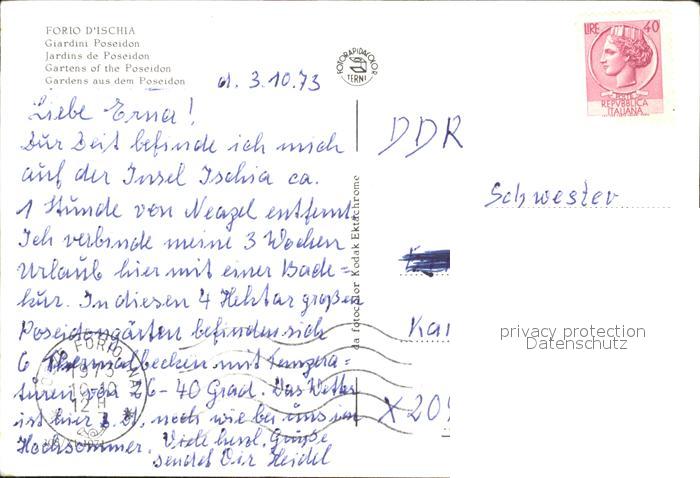 FORIO D'ISCHIA
Giardini Poseidon
Jardins de Poseidon
Gartens of the Poseidon
Gardens aus dem Poseidon
d. 3.10.73
FOTORAPIDACOLOR
TERNI
LIRE 40
POSTE
REPVBBLICA
ITALIANA
Liebe Erna!
Zur Zeit befinde ich mich
auf der Insel Ischia ca.
1 Stunde von Neapel entfernt.
Ich verbinde meine 3 Wochen
Urlaub hier mit einer Bade=
kur. In diesen 4 Hektar großen
Poseidongärten befinden sich
6 Thermalbecken mit Tempera=
turen von 26-40 Grad. Das Wetter
ist hier z. Zt. noch wie bei uns im
Hochsommer. Viele herzl. Grüße
sendet Dir Heidel
da fotocolor Kodak Ektachrome
FORIO
1973
12 H
DDR
Schwester
Kar
X209
privacy protection
Datenschutz